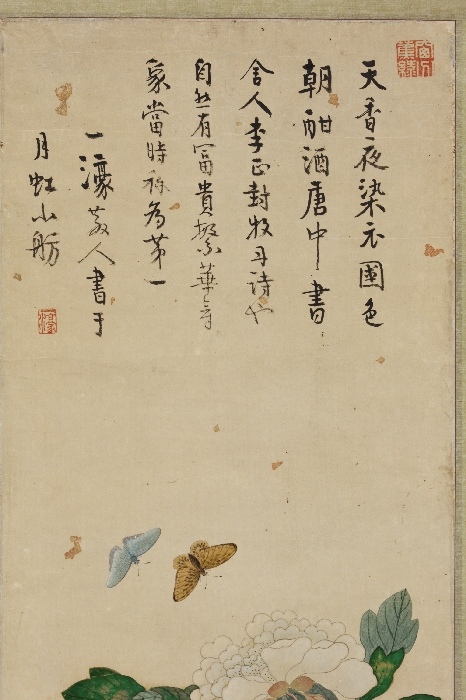 天香夜染衣國色
朝酣酒唐中書
舍人李正封牡丹詩也
自然有冨貴繁華氣
象當時称為第一
一濠散人書于
月虹小舫